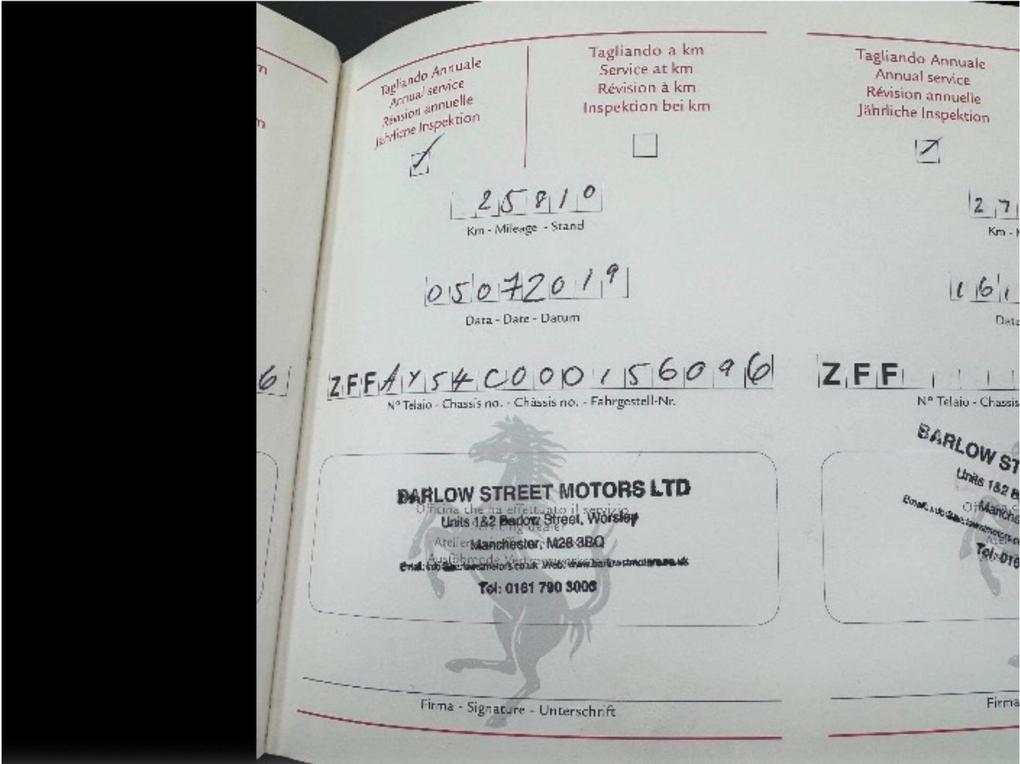 Tagliando Annuale
Annual service
Révision annuelle
Jährliche Inspektion
Tagliando a km
Service at km
Révision à km
Inspektion bei km
25810
Km - Mileage - Stand
05072019
Data - Date - Datum
ZFFAY54C000156096
Nº Telaio - Chassis no. - Châssis no. - Fahrgestell-Nr.
BARLOW STREET MOTORS LTD
Officina che ha effettuato il servizio
Units 1&2 Barlow Street, Worsley
Manchester, M28 3BQ
Tel: 0161 790 3006
Firma - Signature - Unterschrift
Tagliando Annuale
Annual service
Révision annuelle
Jährliche Inspektion
27
Km -
161
Data
ZFF
Nº Telaio - Chassis
BARLOW ST
Units 1&2 B
Manche
Tel: 016
Firma
6